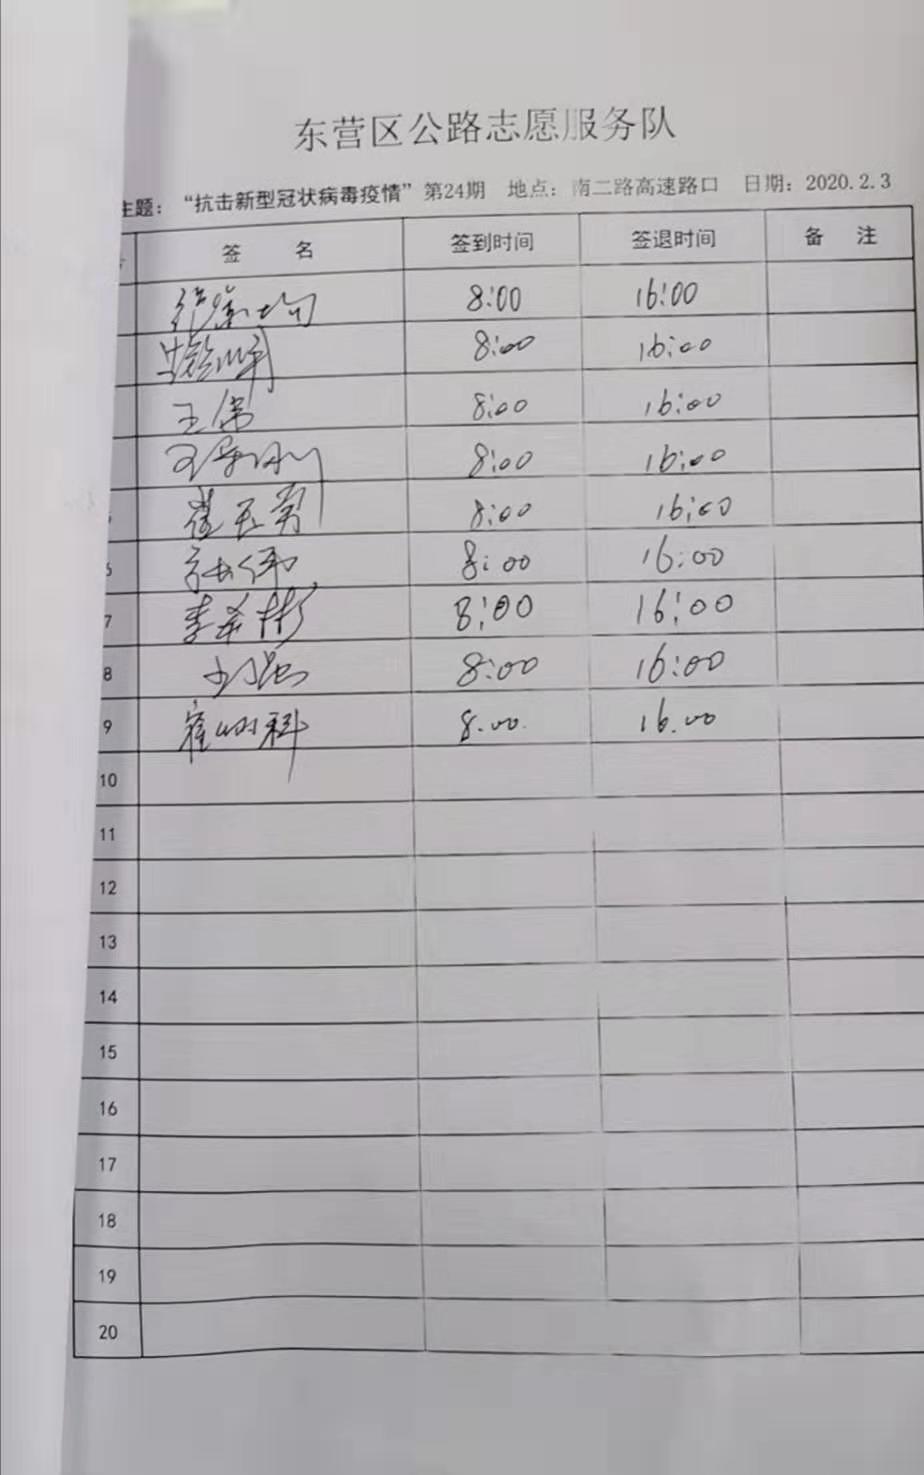 东营区公路志愿服务队
主题：“抗击新型冠状病毒疫情”第24期 地点：南二路高速路口 日期：2020.2.3
签 名 签到时间 签退时间 备 注
8:00 16:00
8:00 16:00
王伟 8:00 16:00
8:00 16:00
崔玉 8:00 16:00
6 张伟 8:00 16:00
7 李希彬 8:00 16:00
8 8:00 16:00
9 8.00. 16.00
10
11
12
13
14
15
16
17
18
19
20